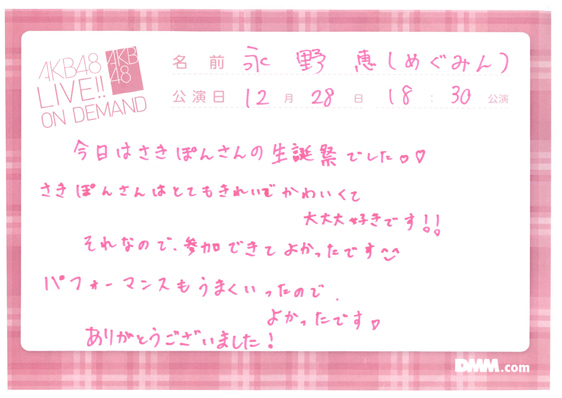 AKB48
LIVE!!
ON DEMAND
AKB
48
名前 永野 恵(めぐみん)
公演日 12月 28日 18:30公演
今日はさきぽんさんの生誕祭でした♡♡
さきぽんさんはとてもきれいでかわいくて
大大大好きです!!
それなので、参加できてよかったです^^
パフォーマンスもうまくいったので、
よかったです♡
ありがとうございました!
DMM.com